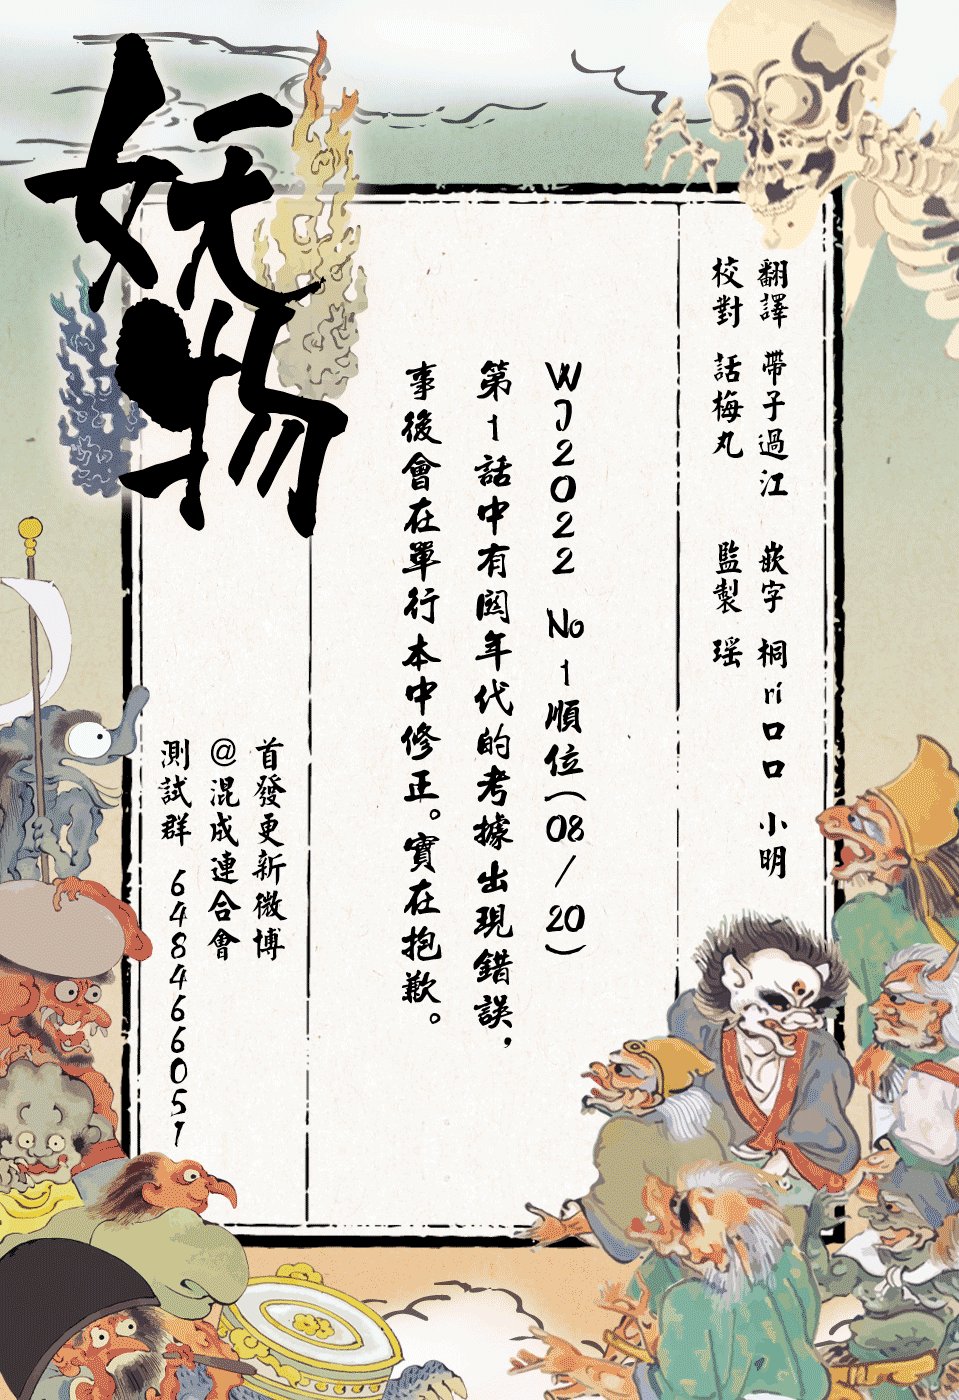 妖物
翻譯 帶子過江 嵌字 桐ri口口 小明
校對 話梅丸 監製 瑶
WJ2022 No1順位(08/20)
第1話中有関年代的考據出現錯誤,
事後會在單行本中修正。實在抱歉。
首發更新微博
@混成連合會
測試群 648466051